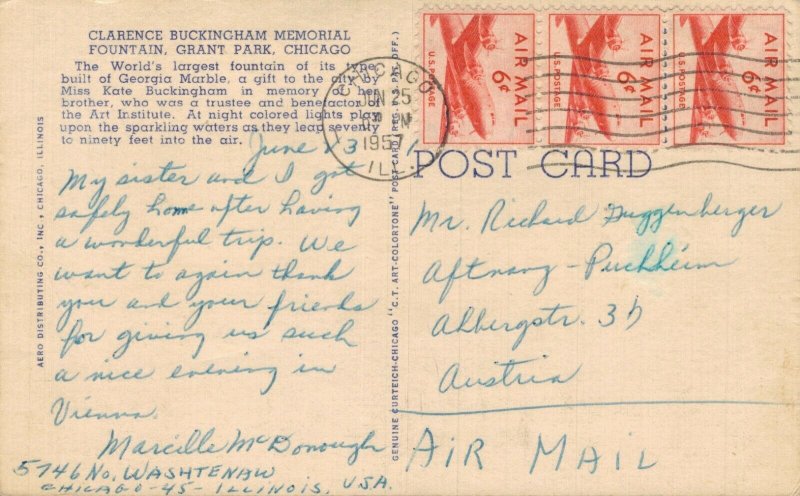 CLARENCE BUCKINGHAM MEMORIAL
FOUNTAIN, GRANT PARK, CHICAGO
The World's largest fountain of its type,
built of Georgia Marble, a gift to the city by
Miss Kate Buckingham in memory of her
brother, who was a trustee and benefactor of
the Art Institute. At night colored lights play
upon the sparkling waters as they leap seventy
to ninety feet into the air.
June 13
My sister and I got
safely home after having
a wonderful trip. We
want to again thank
you and your friends
for giving us such
a nice evening in
Vienna.
Marcille McDonough
5746 No. WASHTENAW
CHICAGO-45-ILLINOIS, U.S.A.
AERO DISTRIBUTING CO., INC., CHICAGO, ILLINOIS
GENUINE CURTEICH-CHICAGO "C.T. ART-COLORTONE" POST CARD (REG. U.S. PAT. OFF.)
CHICAGO
195
ILL
AIR MAIL
6¢
U.S. POSTAGE
AIR MAIL
6¢
U.S. POSTAGE
AIR MAIL
6¢
U.S. POSTAGE
POST CARD
Mr. Richard Guggenberger
Aftnang-Puchheim
Austria
AIR MAIL